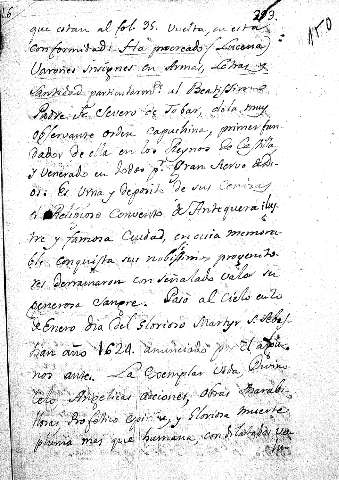 293.
150
que estan al fol. 35. vuelta, en esta
conformidad: Ha procreado Lucena
Varones insignes en Armas, Letras y
Santidad particularmte. al Beatissimo
Padre Fr. Severo de Tobar, dela muy
observante orden capuchina, primer fun
dador de ella en los Reynos de Castilla,
y Venerado en todos pr. Gran Siervo de Di
os: Es Urna y deposito de sus Cenizas
el Religioso Convento de Antequera ilus
tre y famosa Ciudad, en cuia memora
ble conquista sus nobilissimos progenito
res derramaron con señalado valor su
generosa Sangre. Pasó al Cielo en
de Enero dia del Glorioso Martyr S. Sebas
tian año 1624. anunciado por el
nos antes. La exemplar vida
celo Angelicas acciones, obras Marabi
llosas Profetico espiritu, y Gloriosa muerte
pluma mas que humana, con dilatados